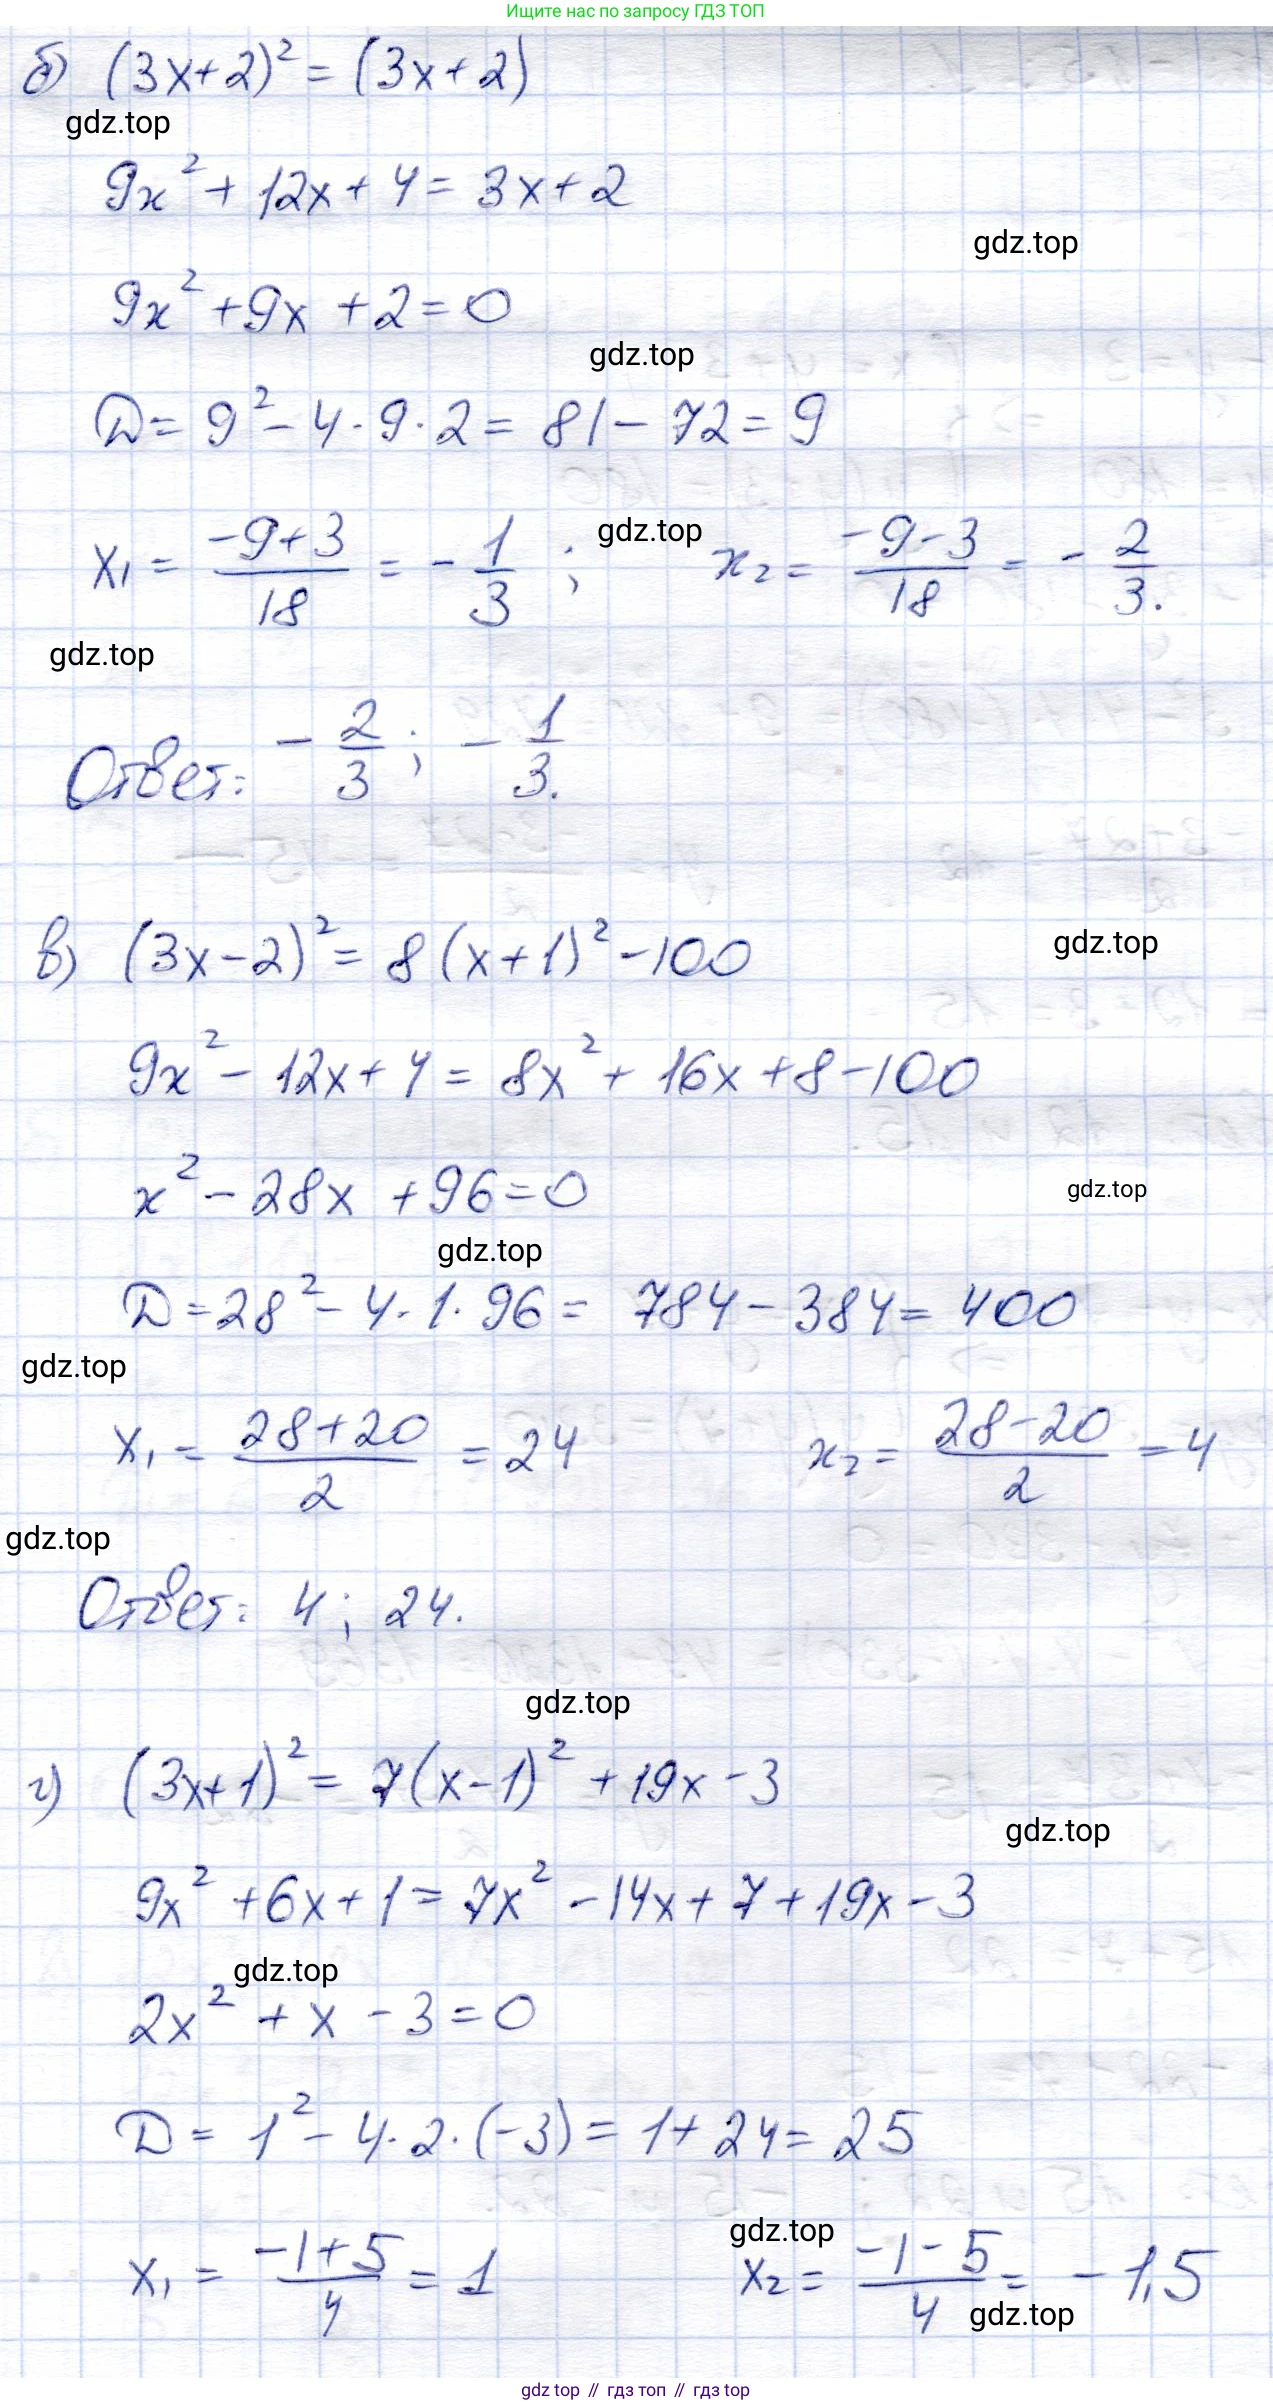 Ищите нас по запросу ГДЗ ТОП
б) (3x+2)² = (3x+2)
gdz.top
9x² + 12x + 4 = 3x + 2
gdz.top
9x² + 9x + 2 = 0
gdz.top
D = 9² - 4·9·2 = 81 - 72 = 9
x₁ = (-9+3)/18 = -1/3 ; gdz.top x₂ = (-9-3)/18 = -2/3.
gdz.top
Ответ: -2/3; -1/3.
в) (3x-2)² = 8(x+1)² - 100
gdz.top
9x² - 12x + 4 = 8x² + 16x + 8 - 100
x² - 28x + 96 = 0
gdz.top
gdz.top
D = 28² - 4·1·96 = 784 - 384 = 400
gdz.top
x₁ = (28+20)/2 = 24 x₂ = (28-20)/2 = 4
gdz.top
Ответ: 4; 24.
gdz.top
г) (3x+1)² = 7(x-1)² + 19x - 3
gdz.top
9x² + 6x + 1 = 7x² - 14x + 7 + 19x - 3
gdz.top
2x² + x - 3 = 0
D = 1² - 4·2·(-3) = 1 + 24 = 25
gdz.top
x₁ = (-1+5)/4 = 1 x₂ = (-1-5)/4 = -1,5
gdz.top
gdz top // гдз топ // gdz top